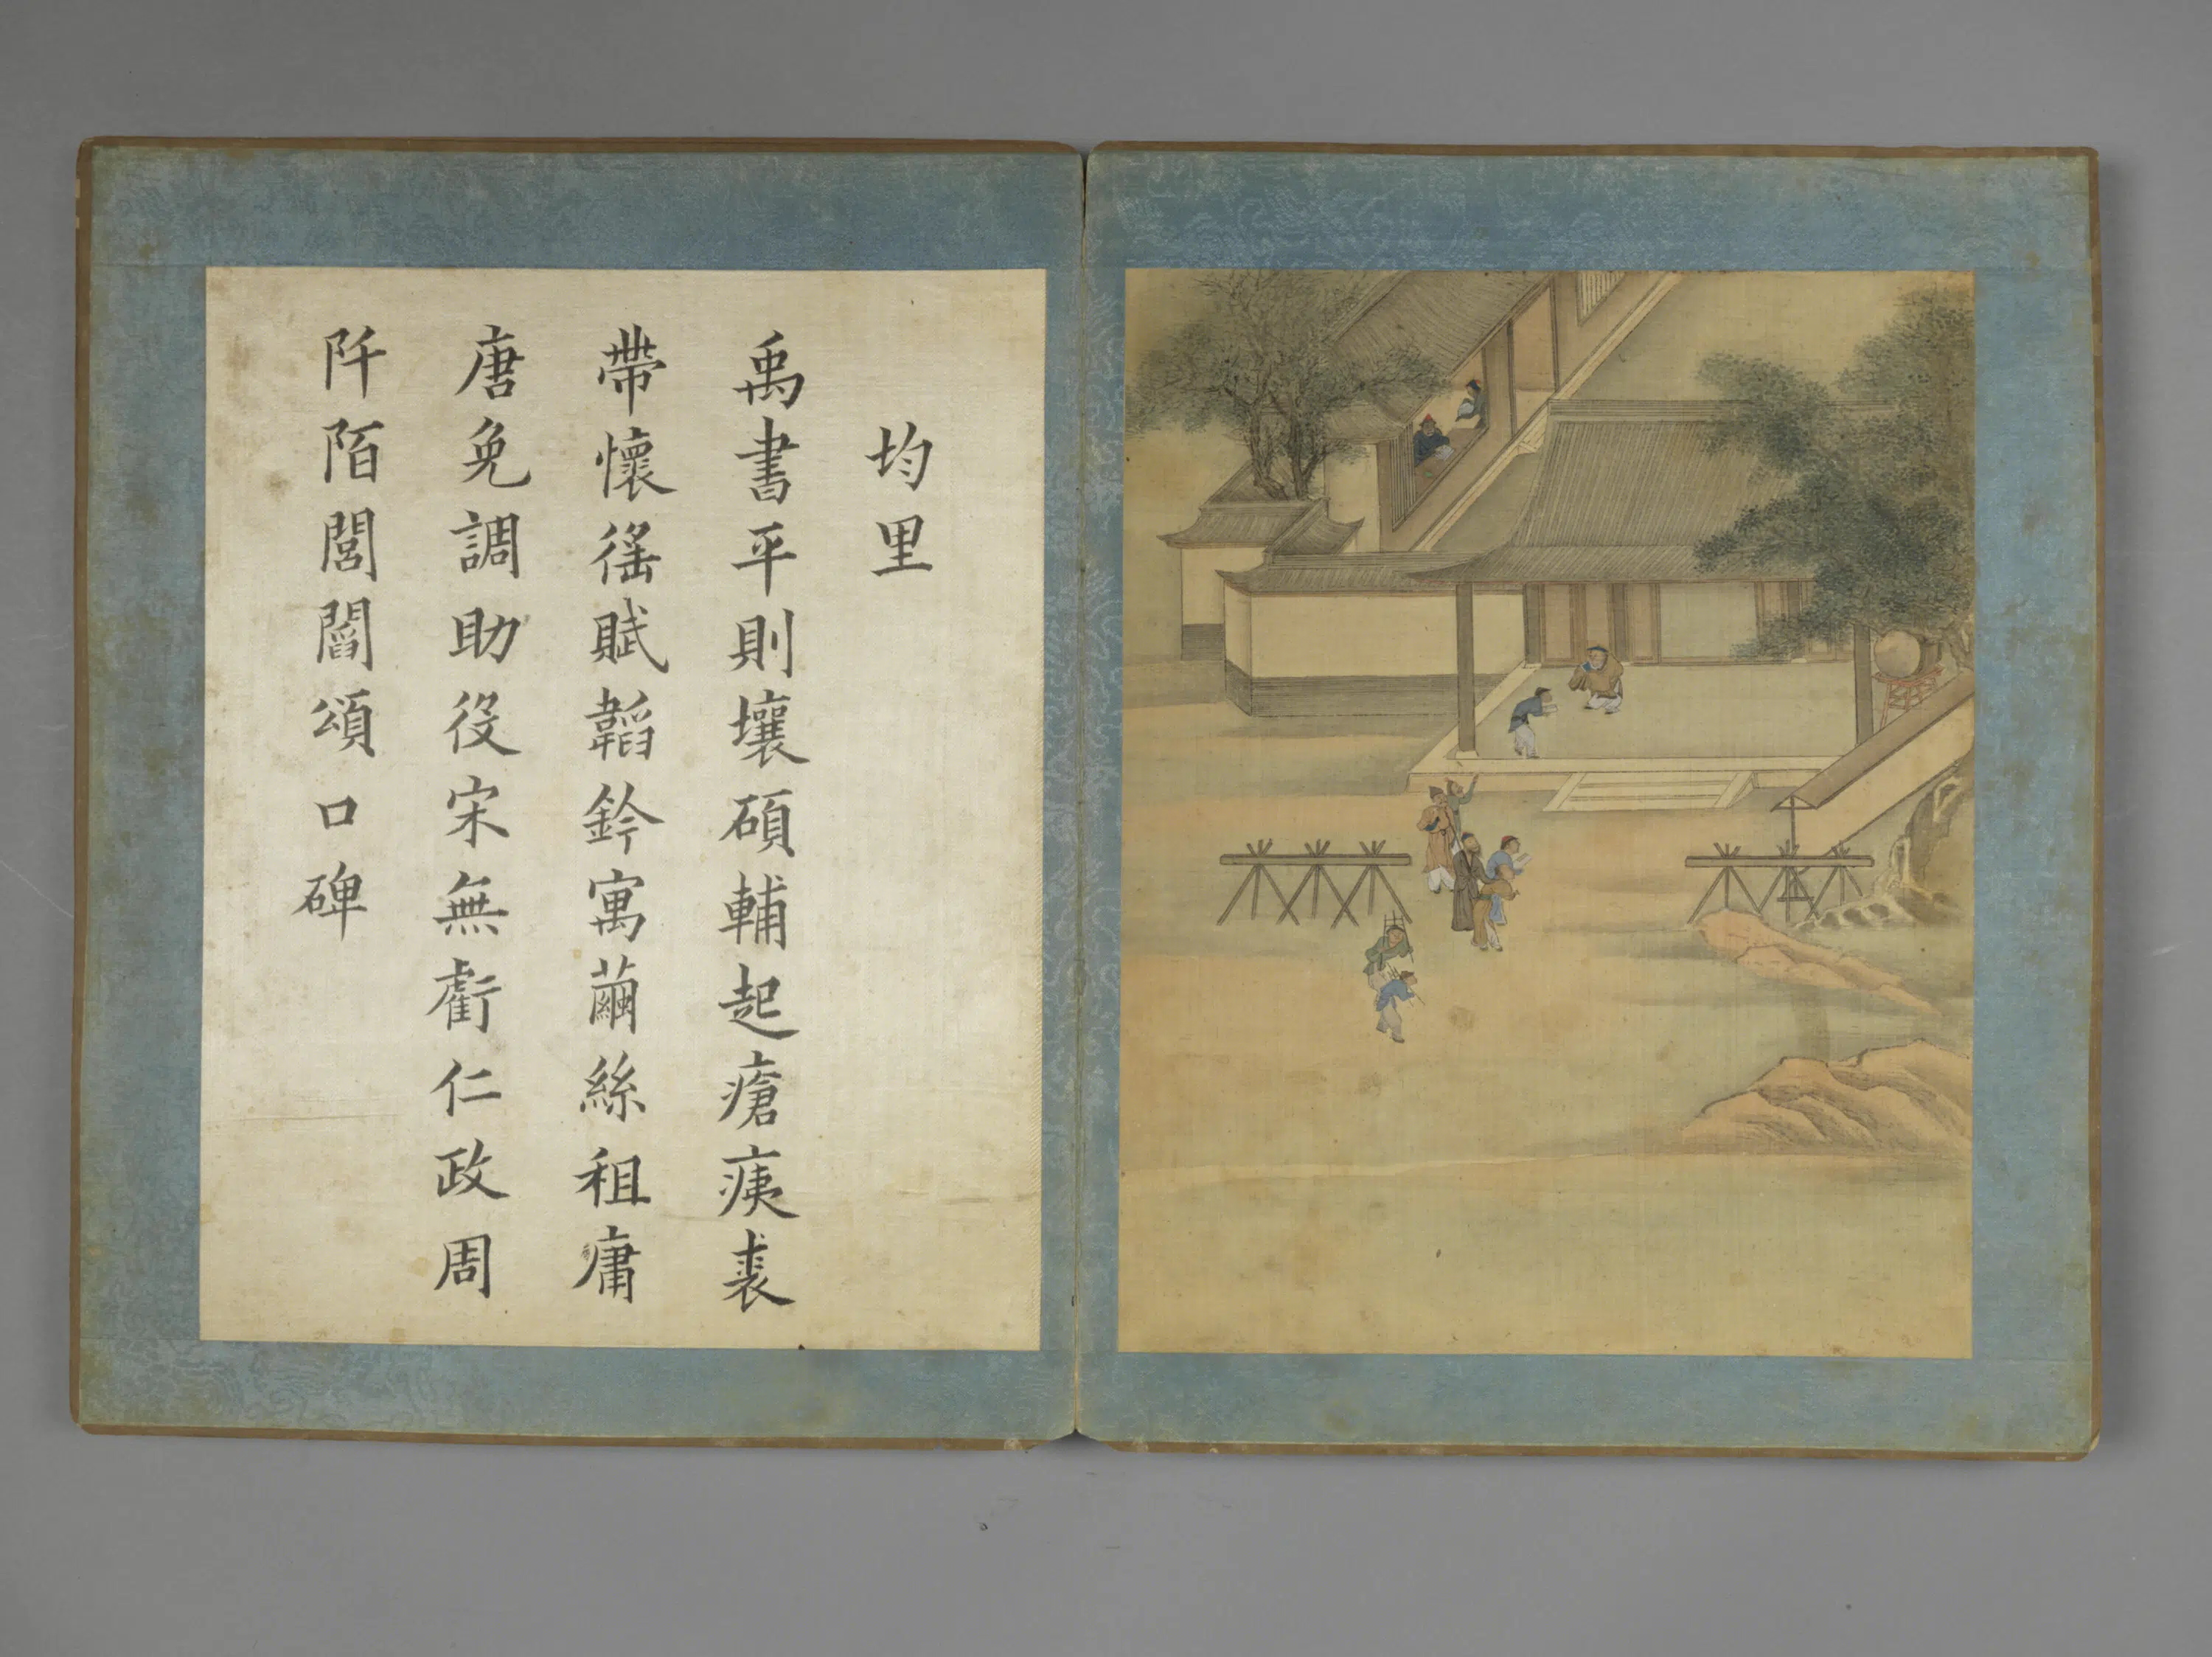 均里
禹書平則壤碩輔起瘡痍裘
帶懷徭賦韜鈐寓繭絲租庸
唐免調助役宋無虧仁政周
阡陌閭閻頌口碑